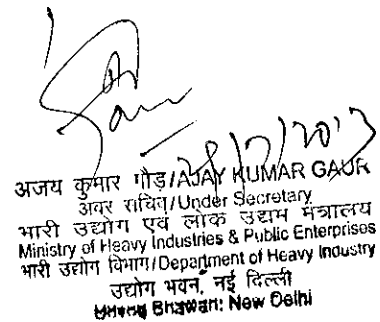 अजय कुमार गौड़/AJAY KUMAR GAUR
अवर सचिव/Under Secretary
भारी उद्योग एवं लोक उद्यम मंत्रालय
Ministry of Heavy Industries & Public Enterprises
भारी उद्योग विभाग/Department of Heavy Industry
उद्योग भवन, नई दिल्ली
Bhawan: New Delhi